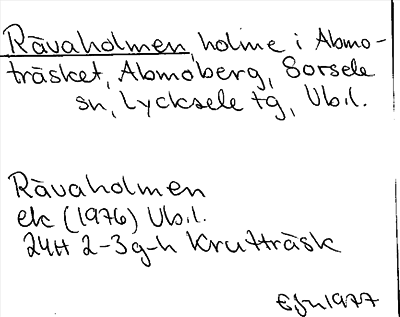 Råvaholmen, holme i Abmo-
träsket, Abmoberg, Sorsele
sn, Lycksele tg, Vb.l.
Råvaholmen
ek (1976) Vb.l.
24H 2-3g-h Krutträsk
1977